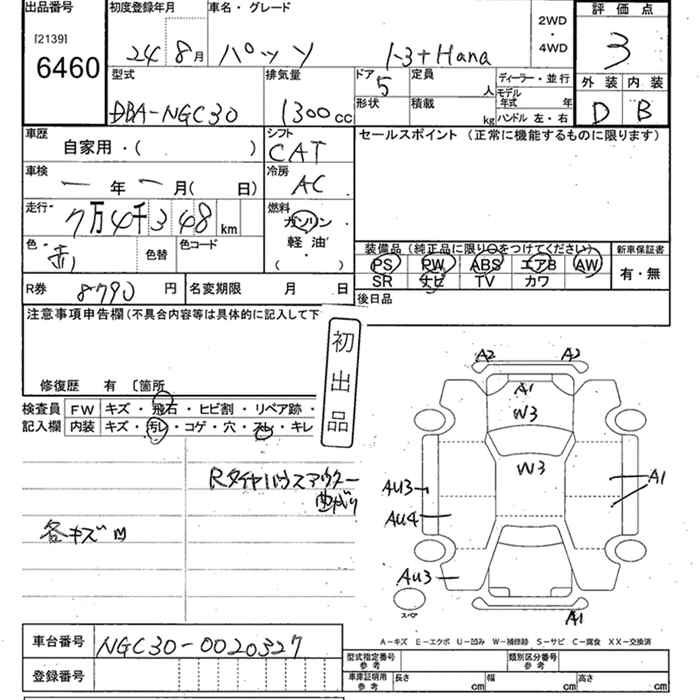 出品番号
[2139]
6460
初度登録年月
24 8月
車名・グレード
パッソ 1.3+Hana
2WD
・
4WD
評価点
3
外装 内装
D B
型式
DBA-NGC30
排気量
1300cc
ドア
5
定員
人
形状
積載
kg
ディーラー・並行
モデル
年式 年
ハンドル 左・右
車歴
自家用・( )
シフト
CAT
セールスポイント (正常に機能するものに限ります)
車検
ー年ー月( 日)
冷房
AC
走行
7万4千348km
燃料
ガソリン
軽油
( )
色
赤
色替
色コード
装備品(純正品に限り○をつけてください)
PS PW ABS エアB AW
SR ナビ TV カワ
新車保証書
有・無
R券 8790円
名変期限 月 日
後日品
注意事項申告欄(不具合内容等は具体的に記入して下
初出品
修復歴 有 〔箇所
検査員
記入欄
FW キズ・飛石・ヒビ割・リペア跡・
内装 キズ・汚レ・コゲ・穴・スレ・キレ
Rタイヤハウスアウター
曲がり
各キズ凹
A2 A2
A1
W3
W3
AU3
A1
AU4
AU3
スペア
A1
A-キズ E-エクボ U-凹み W-補修跡 S-サビ C-腐食 XX-交換済
車台番号 NGC30-0020327
登録番号
型式指定番号
参考
類別区分番号
参考
車庫証明用
参考
長さ cm 幅 cm 高さ cm